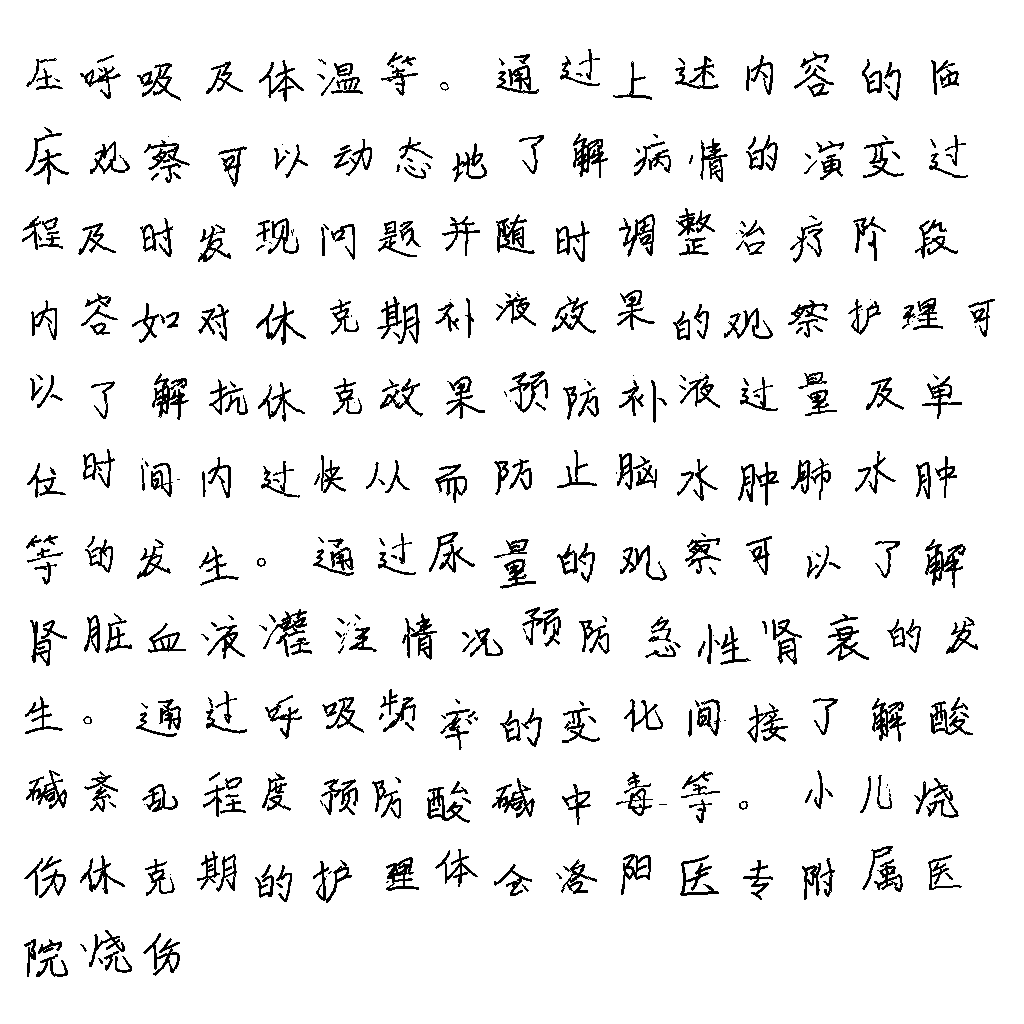 压呼吸及体温等。通过上述内容的临
床观察可以动态地了解病情的演变过
程及时发现问题并随时调整治疗阶段
内容如对休克期补液效果的观察护理可
以了解抗休克效果预防补液过量及单
位时间内过快从而防止脑水肿肺水肿
等的发生。通过尿量的观察可以了解
肾脏血液灌注情况预防急性肾衰的发
生。通过呼吸频率的变化间接了解酸
碱紊乱程度预防酸碱中毒等。小儿烧
伤休克期的护理体会洛阳医专附属医
院烧伤